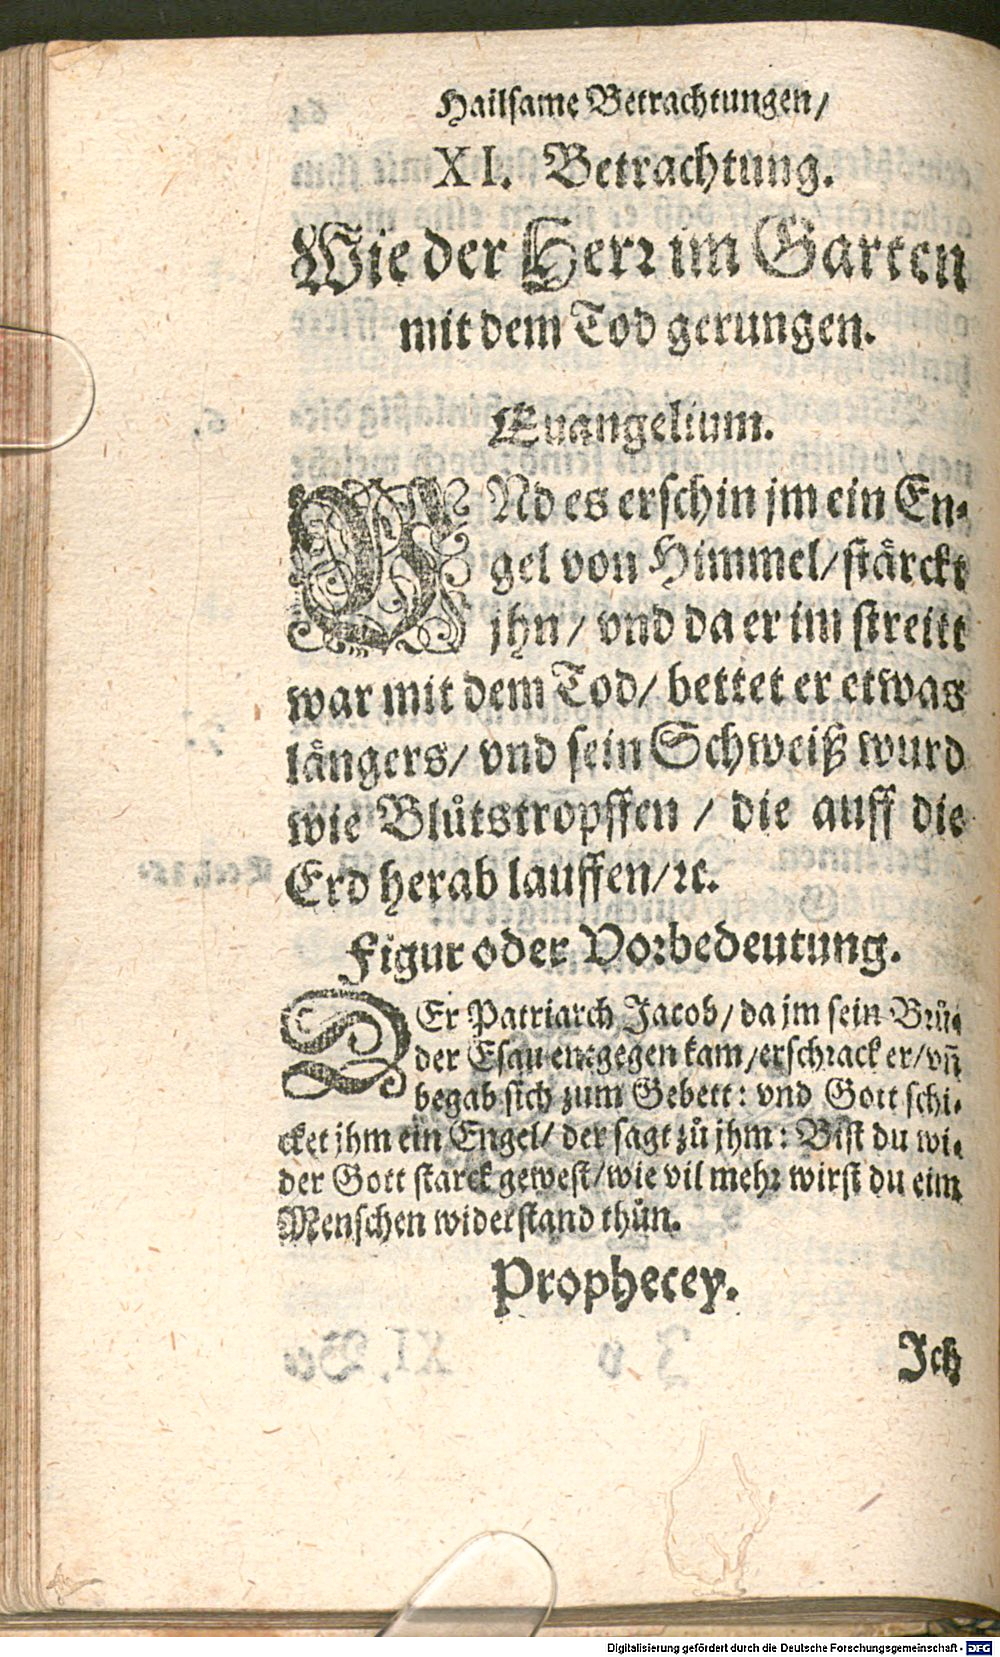 Hailsame Betrachtungen/
XI. Betrachtung.
Wie der Herꝛ im Garten
mit dem Tod gerungen.
Euangelium.
VNd es erschin jm ein En-
gel von Himmel/stärckt
jhn/ vnd da er im streitt
war mit dem Tod/ bettet er etwas
längers/ vnd sein Schweiß wurd
wie Blůtstropffen / die auff die
Erd herab lauffen/ꝛc.
Figur oder Voꝛbedeutung.
DEr Patriarch Jacob/ da jm sein Bꝛů-
der Esau entgegen kam/erschꝛack er/vñ
begab sich zum Gebett: vnd Gott schi-
cket jhm ein Engel/ der sagt zů jhm: Bist du wi-
der Gott starck gewest/wie vil mehꝛ wirst du eim
Menschen widerstand thůn.
Prophecey.
Ich
Digitalisierung gefördert durch die Deutsche Forschungsgemeinschaft - DFG